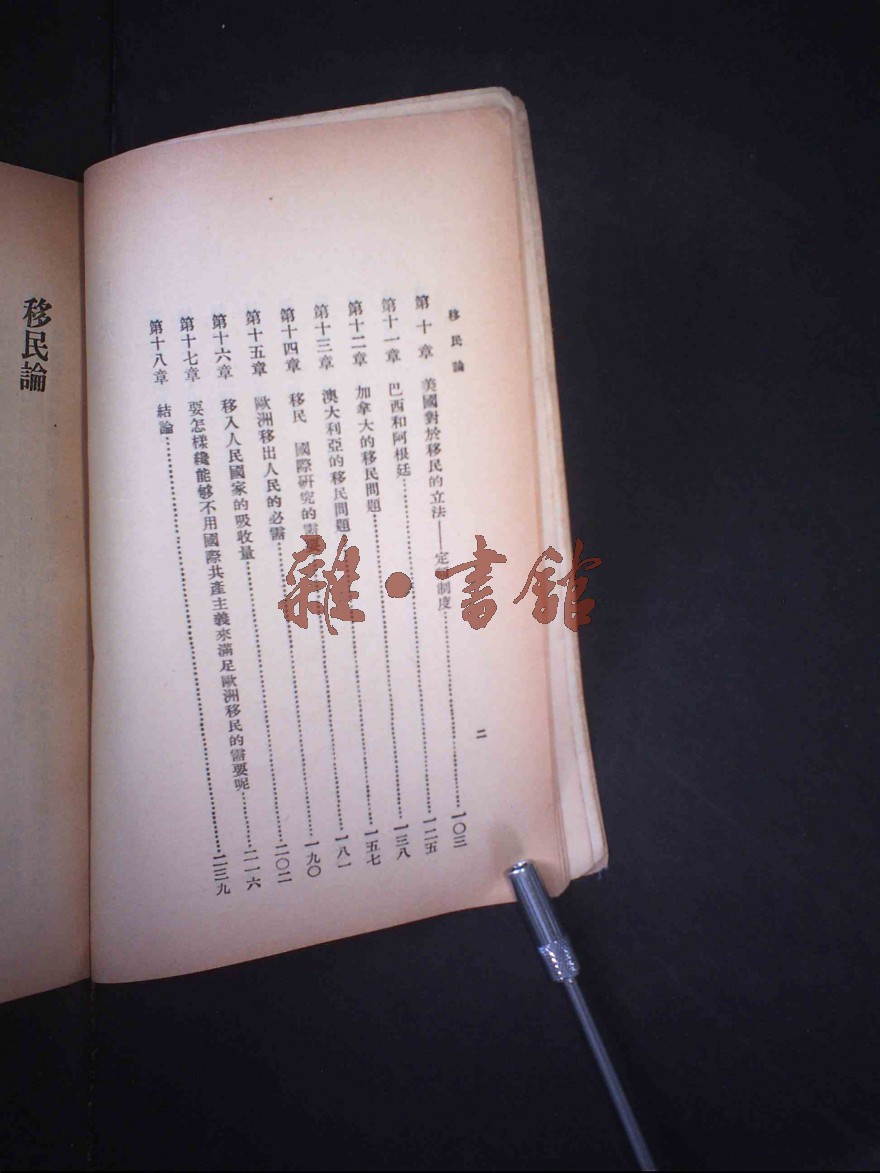 移民論
二
第十章 美國對於移民的立法——定制度……一〇三
第十一章 巴西和阿根廷……一二五
第十二章 加拿大的移民問題……一三八
第十三章 澳大利亞的移民問題……一五七
第十四章 移民 國際研究的需要……一八一
第十五章 歐洲移出人民的必需……一九〇
第十六章 移入人民國家的吸收量……二〇二
第十七章 要怎樣纔能够不用國際共產主義來滿足歐洲移民的需要呢……二一六
第十八章 結論……二三九
移民論
雜·書館